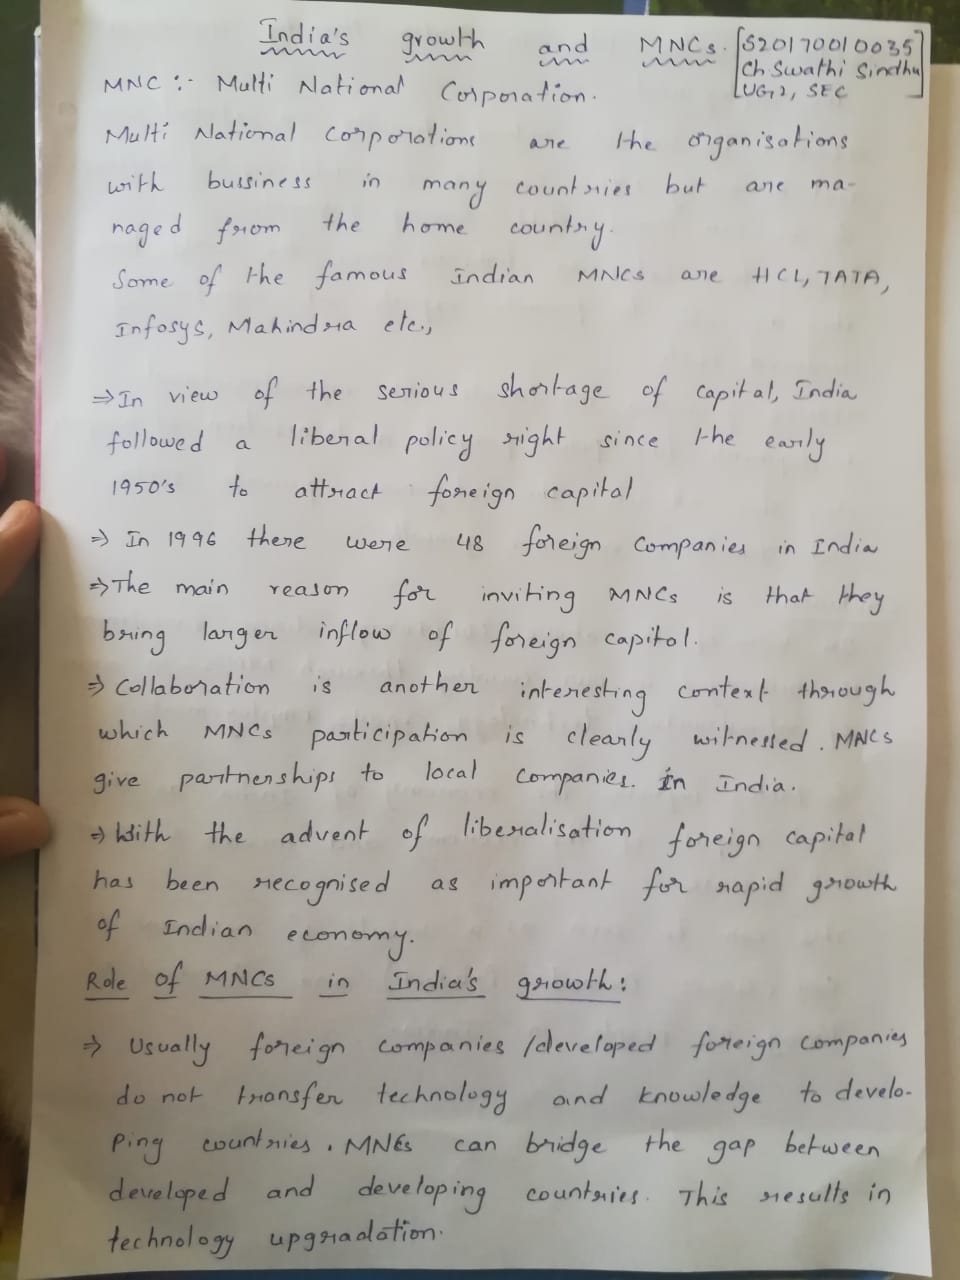 India's growth and MNCs. [S20170010035
Ch Swathi Sindhu
UG2, SEC]
MNC :- Multi National Corporation.
Multi National corporations are the organisations
with bussiness in many countries but are ma-
naged from the home country.
Some of the famous Indian MNCs are HCL, TATA,
Infosys, Mahindra etc.,
⇒ In view of the serious shortage of capital, India
followed a liberal policy right since the early
1950's to attract foreign capital
⇒ In 1996 there were 48 foreign companies in India
⇒ The main reason for inviting MNCs is that they
bring larger inflow of foreign capital.
⇒ Collaboration is another interesting context through
which MNCs participation is clearly witnessed. MNCs
give partnerships to local companies. in India.
⇒ With the advent of liberalisation foreign capital
has been recognised as important for rapid growth
of Indian economy.
Role of MNCs in India's growth:
⇒ Usually foreign companies /developed foreign companies
do not transfer technology and knowledge to develo-
ping countries. MNCs can bridge the gap between
developed and developing countries. This results in
technology upgradation.